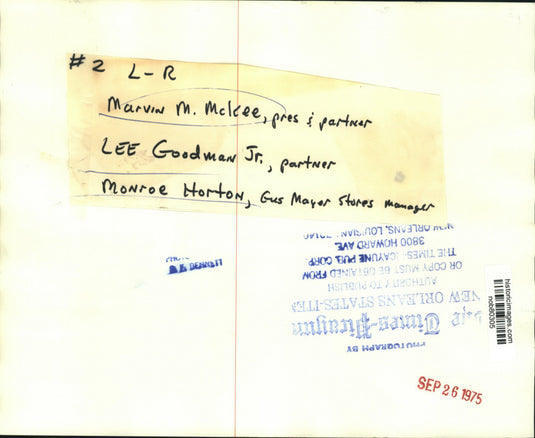 #2 L-R
Marvin M. McKee, pres & partner
LEE Goodman Jr., partner
Monroe Horton, Gus Mayer Stores manager
PHOTOGRAPH BY
The Times-Picayune
NEW ORLEANS STATES-ITEM
AUTHORITY TO PUBLISH
OR COPY MUST BE OBTAINED FROM
THE TIMES-PICAYUNE PUB. CORP.
3800 HOWARD AVE.
NEW ORLEANS, LOUISIANA 70140
historicimages.com
SEP 26 1975